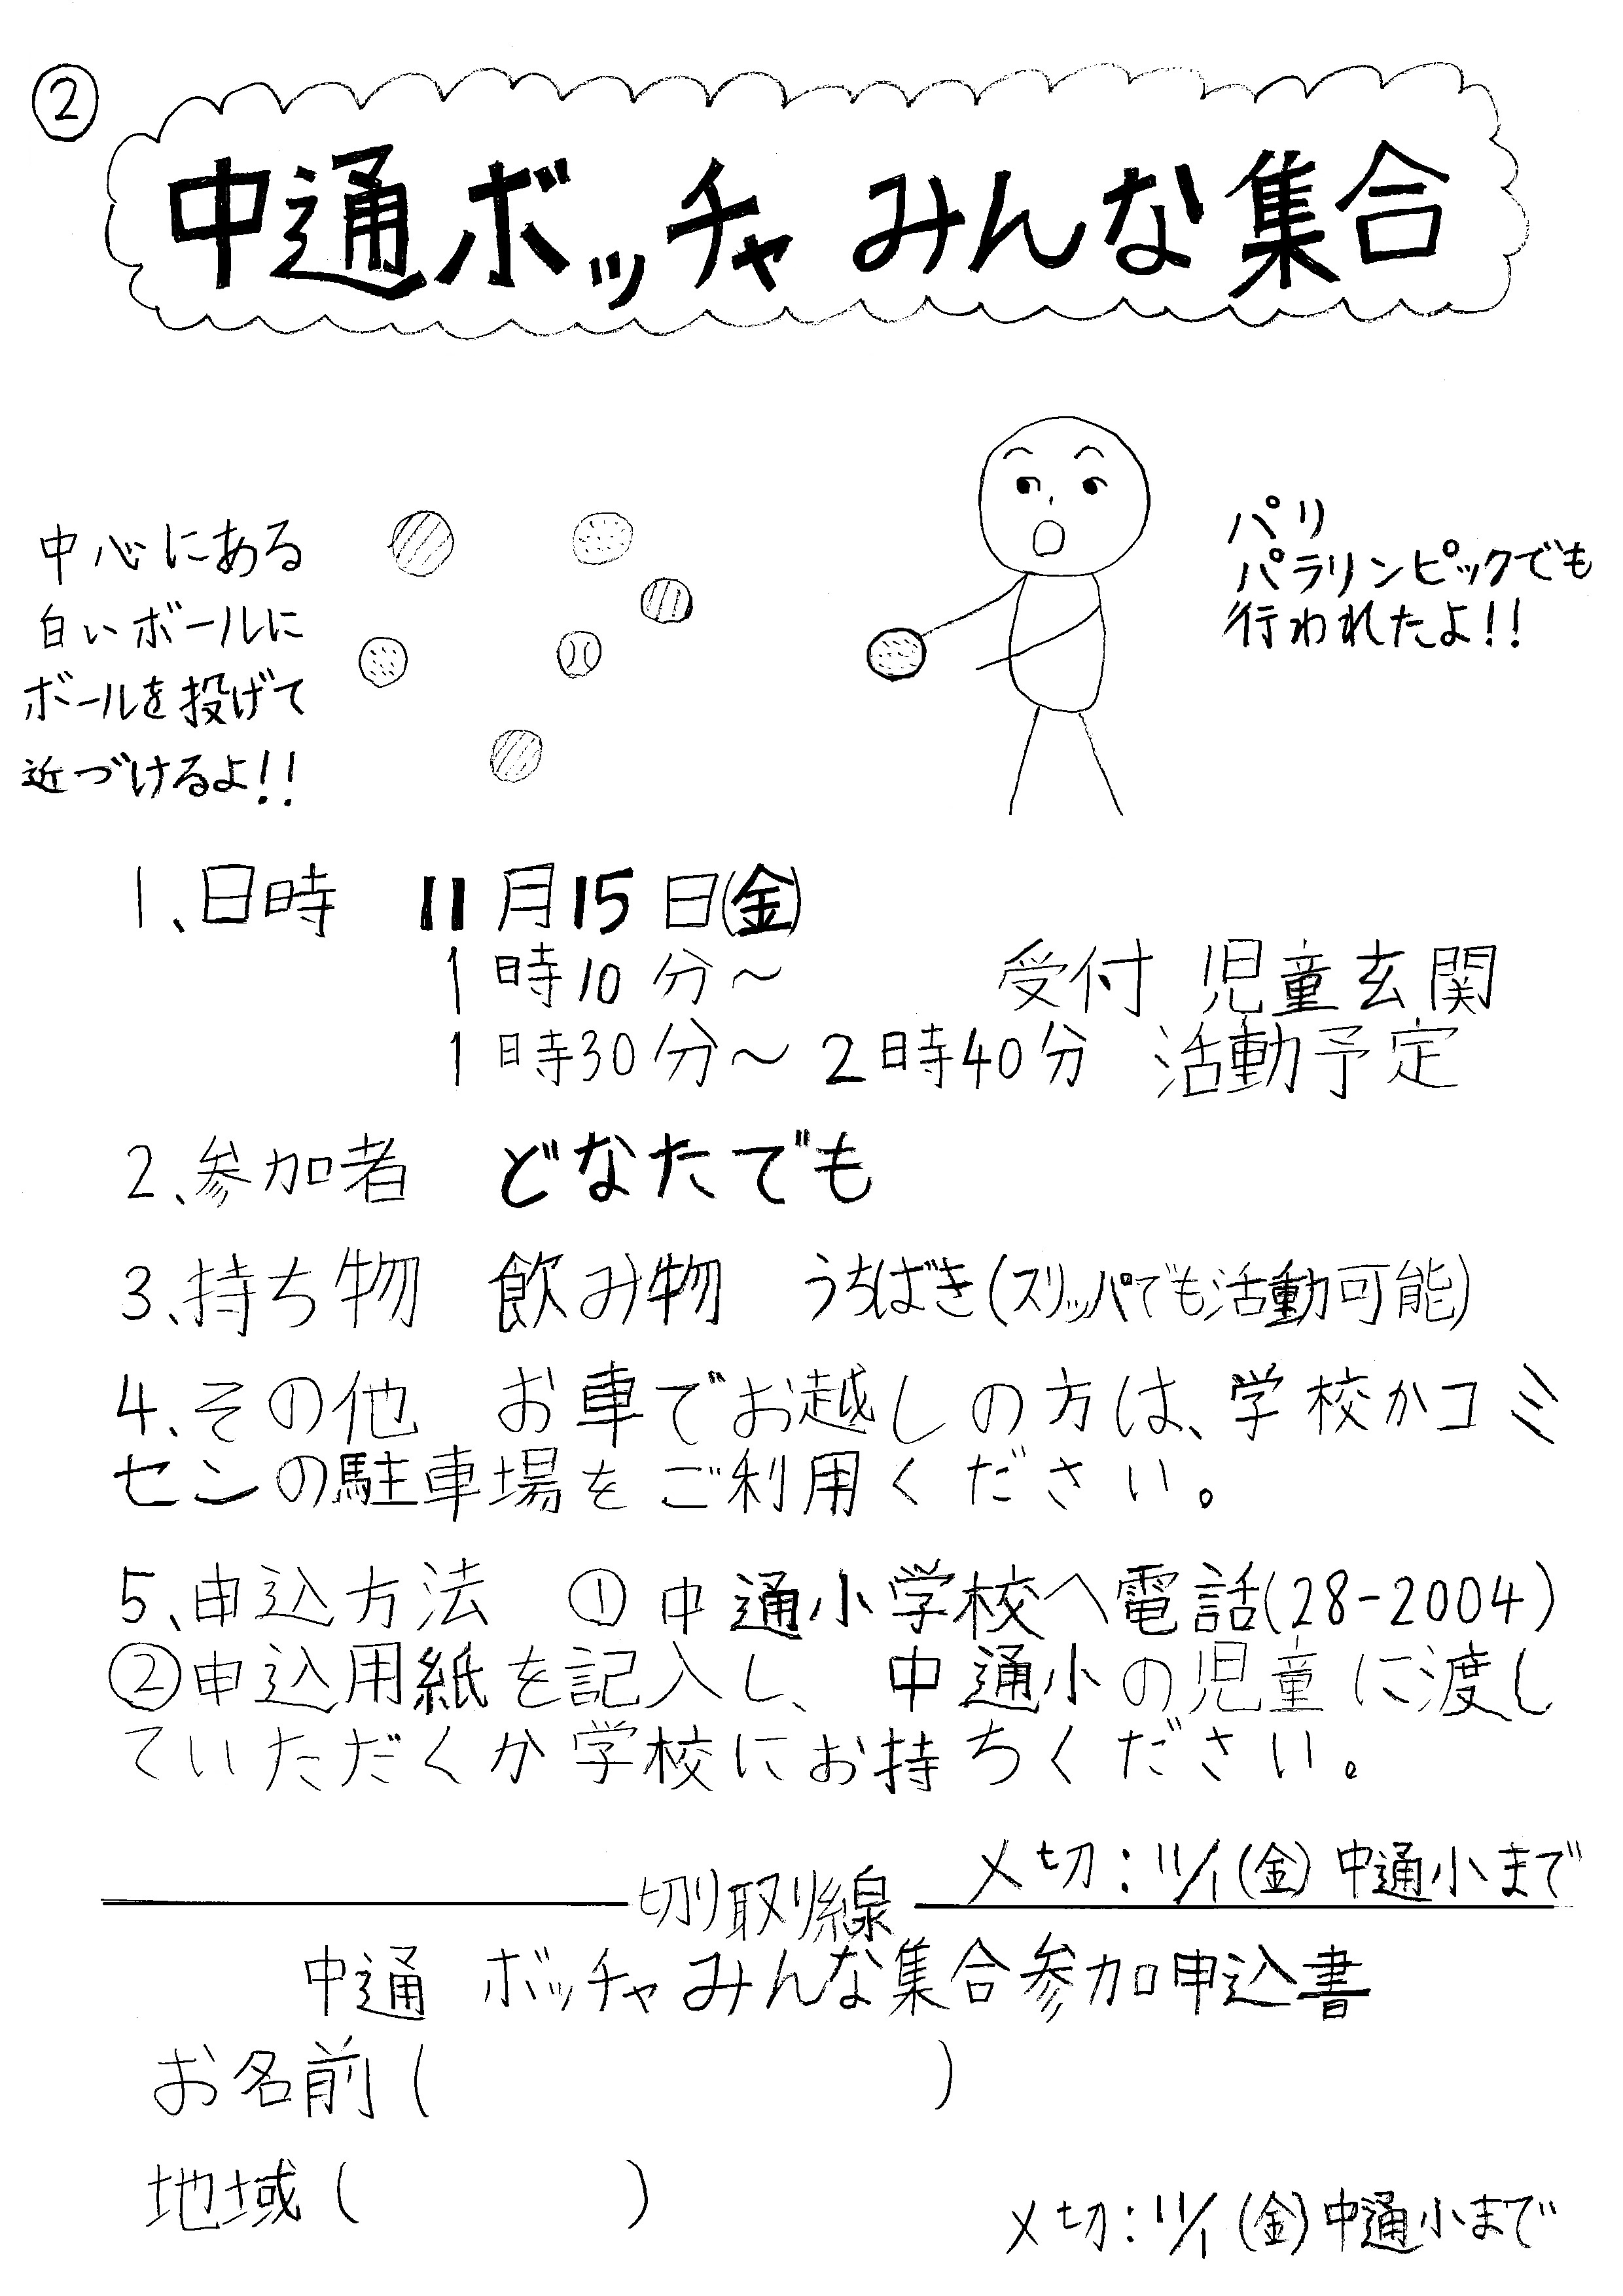 ②
中通ボッチャ みんな集合
中心にある
白いボールに
ボールを投げて
近づけるよ!!
パリ
パラリンピックでも
行われたよ!!
1、日時 11月15日(金)
1時10分～ 受付 児童玄関
1時30分～2時40分 活動予定
2、参加者 どなたでも
3、持ち物 飲み物 うちばき(スリッパでも活動可能)
4、その他 お車でお越しの方は、学校かコミ
センの駐車場をご利用ください。
5、申込方法 ①中通小学校へ電話(28-2004)
②申込用紙を記入し、中通小の児童に渡し
ていただくか学校にお持ちください。
〆切:11/1(金)中通小まで
切り取り線
中通 ボッチャみんな集合参加申込書
お名前( )
地域( )
〆切:11/1(金)中通小まで